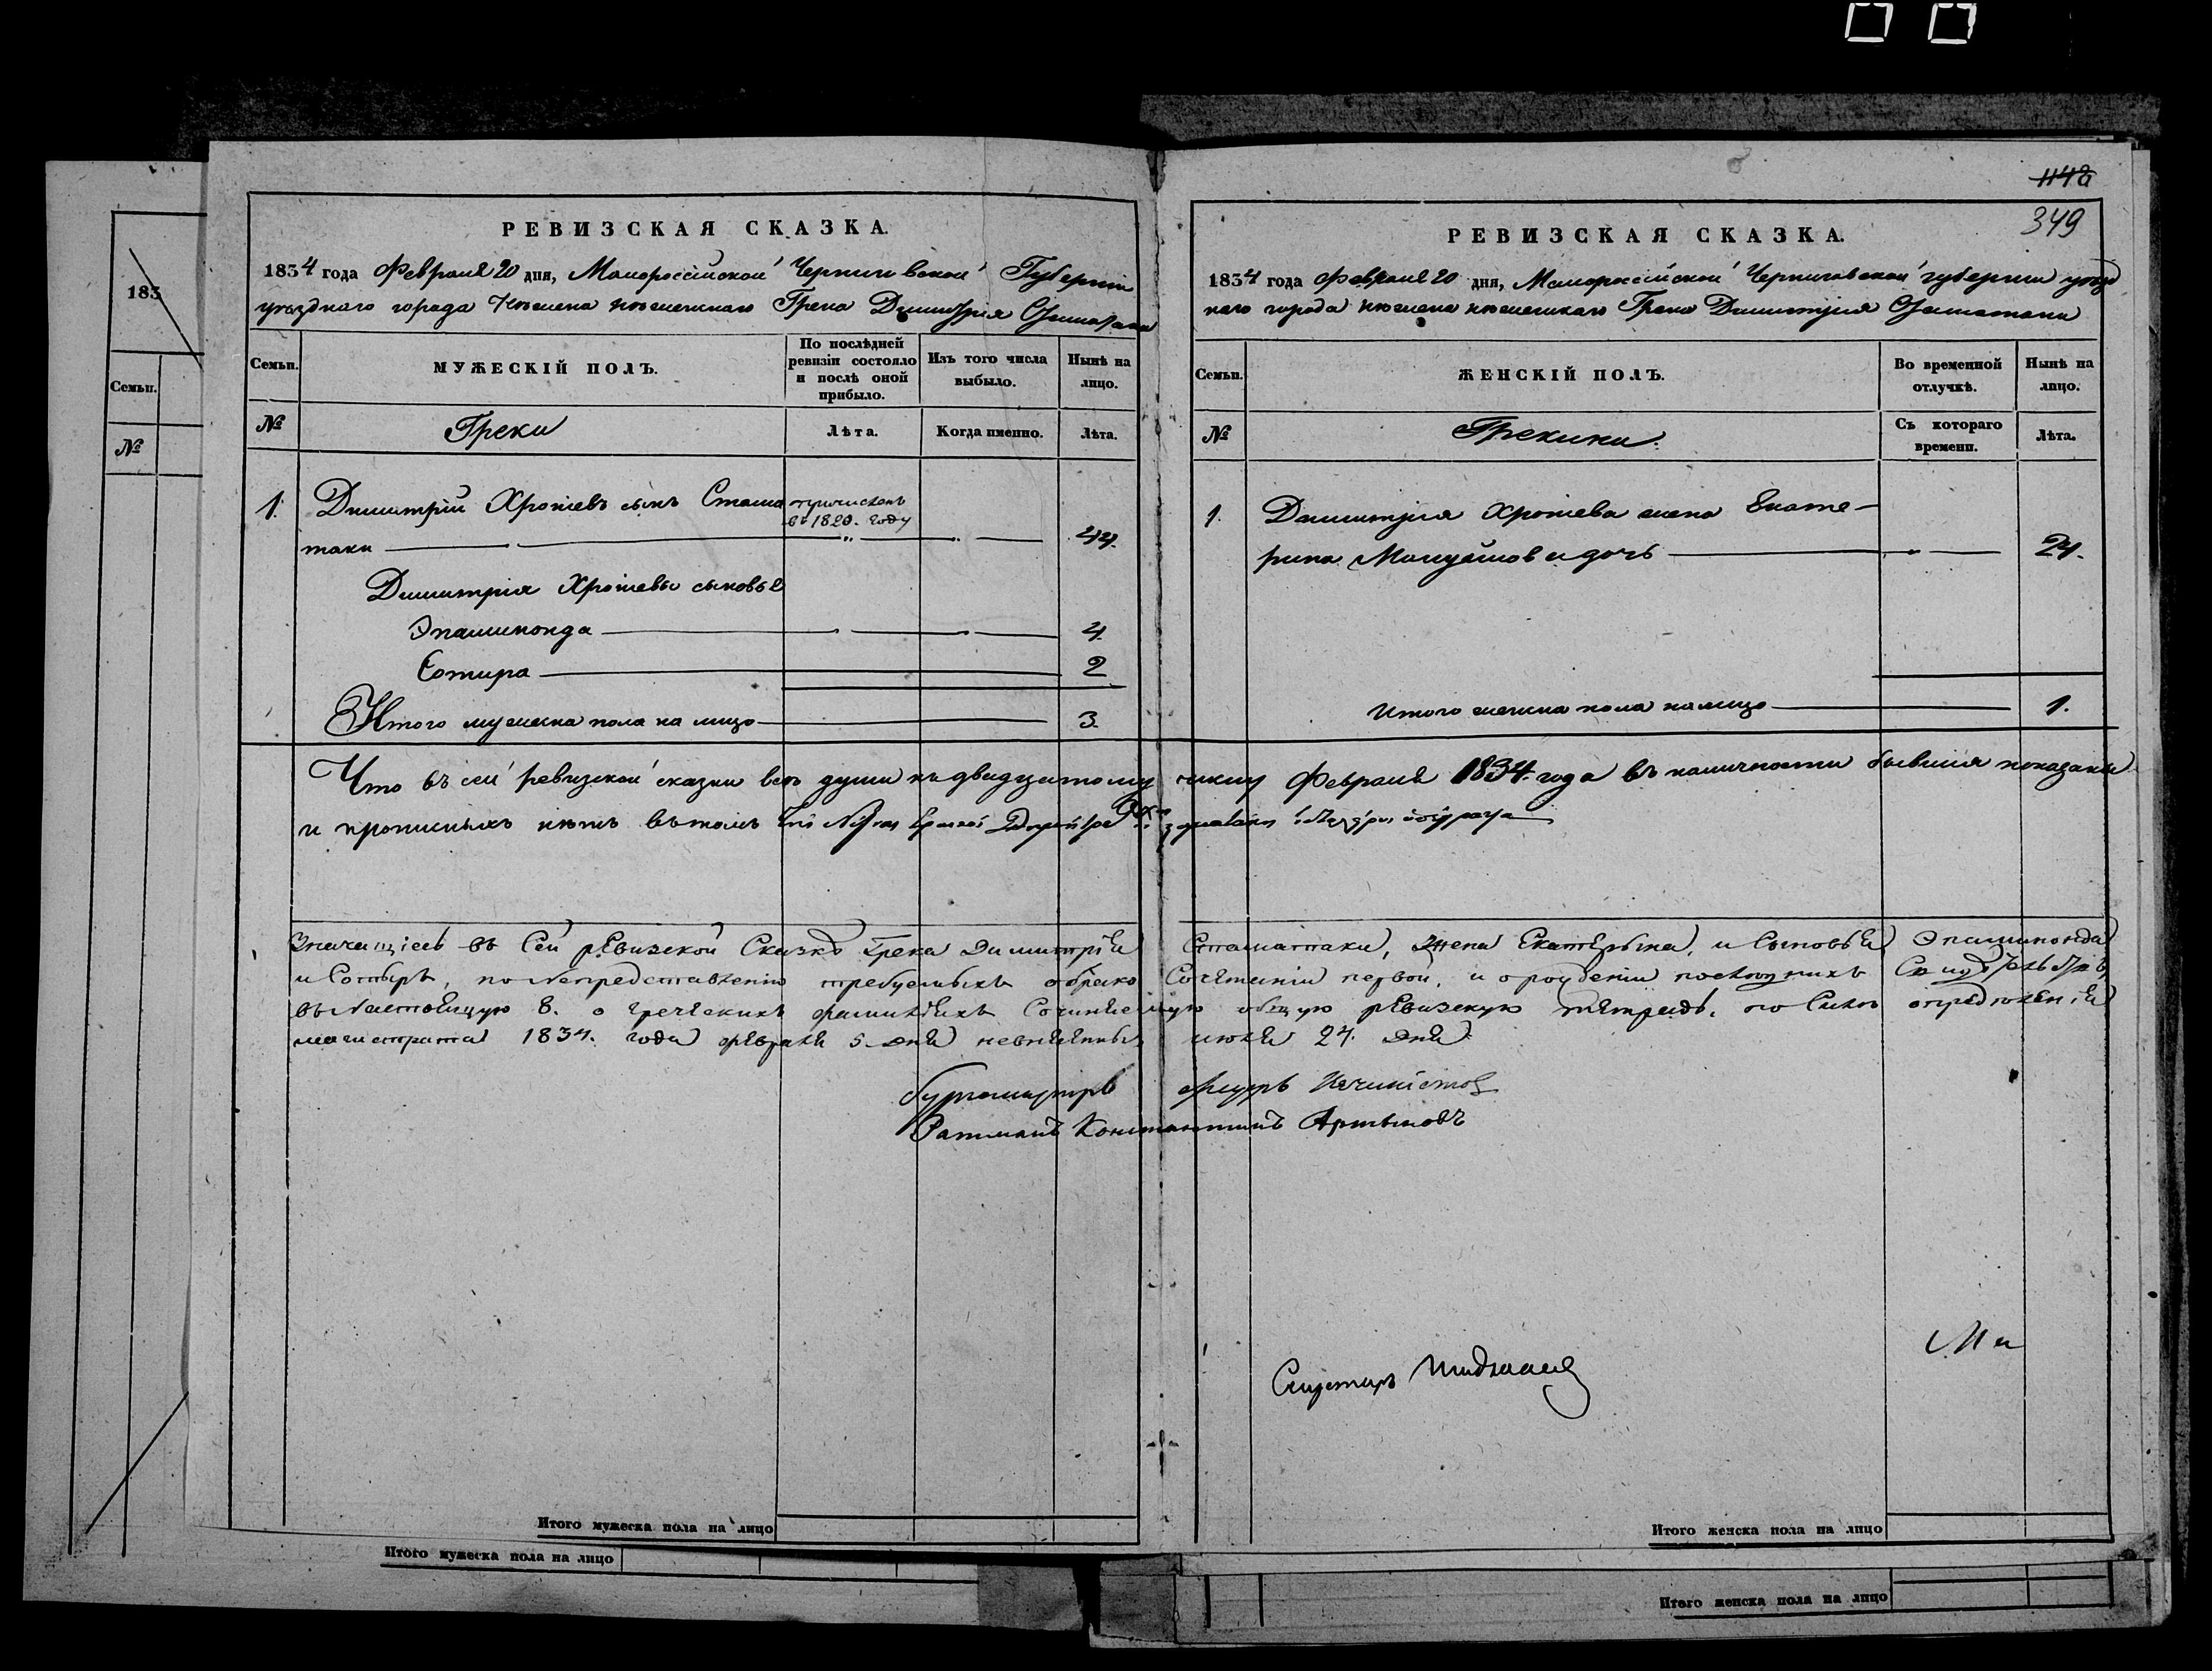 1142
349
РЕВИЗСКАЯ СКАЗКА.
1834 года Февраля 20 дня, Малороссійской Черниговской Губерніи
уѣзднаго города Нѣжина нѣжинскаго Грека Димитрія Стаматаки
Семьи.
МУЖЕСКІЙ ПОЛЪ.
По послѣдней ревизіи состояло и послѣ оной прибыло.
Изъ того числа выбыло.
Нынѣ на лицо.
№
Греки
Лѣта.
Когда именно.
Лѣта.
1. Димитрій Хрониевъ сынъ Стама причисленъ
въ 1820. году
таки 44.
Димитрія Хрониева сыновья
Эпаминонда 4.
Сотира 2
Итого мужеска пола на лицо 3.
РЕВИЗСКАЯ СКАЗКА.
1834 года Февраля 20 дня, Малороссійской Черниговской губерніи уѣзд
наго города нѣжина нѣжинскаго Грека Димитрія Стаматаки
Семьи.
ЖЕНСКІЙ ПОЛЪ.
Во временной отлучкѣ.
Нынѣ на лицо.
№
Грекини
Съ котораго времени.
Лѣта.
1. Димитрія Хрониева жена Екате-
рина дочь 24.
Итого женска пола налицо 1.
Что въ сей ревизской сказки всѣ души къ двадцатому числу Февраля 1834 года въ наличности бывшія показаны
и прописныхъ нѣтъ въ томъ
Значащіесь въ Сей рЕвизской Сказкѣ Грека Димитрія Стаматтаки, Жена Екатерына, и Сыновья Эпаминонда
и Сотыръ, по Непредставленію требуемыхъ о брако Сочетаніи первой, и о рожденіи послѣднихъ Свидѣтельствъ,
въ Настоящую 8. о греческихъ фамиліяхъ Сочиняемую общую рЕвизскую тетрадь, по Силѣ опредѣленія
магистрата 1834. года февраля 5 дня невнесенны, июля 24. дня
бургомистръ
Ратманъ Константинъ Артыновъ
Секретарь
183
Семьи.
№
Итого мужеска пола на лицо
Итого женска пола на лицо
Итого мужеска пола на лицо
Итого женска пола на лицо